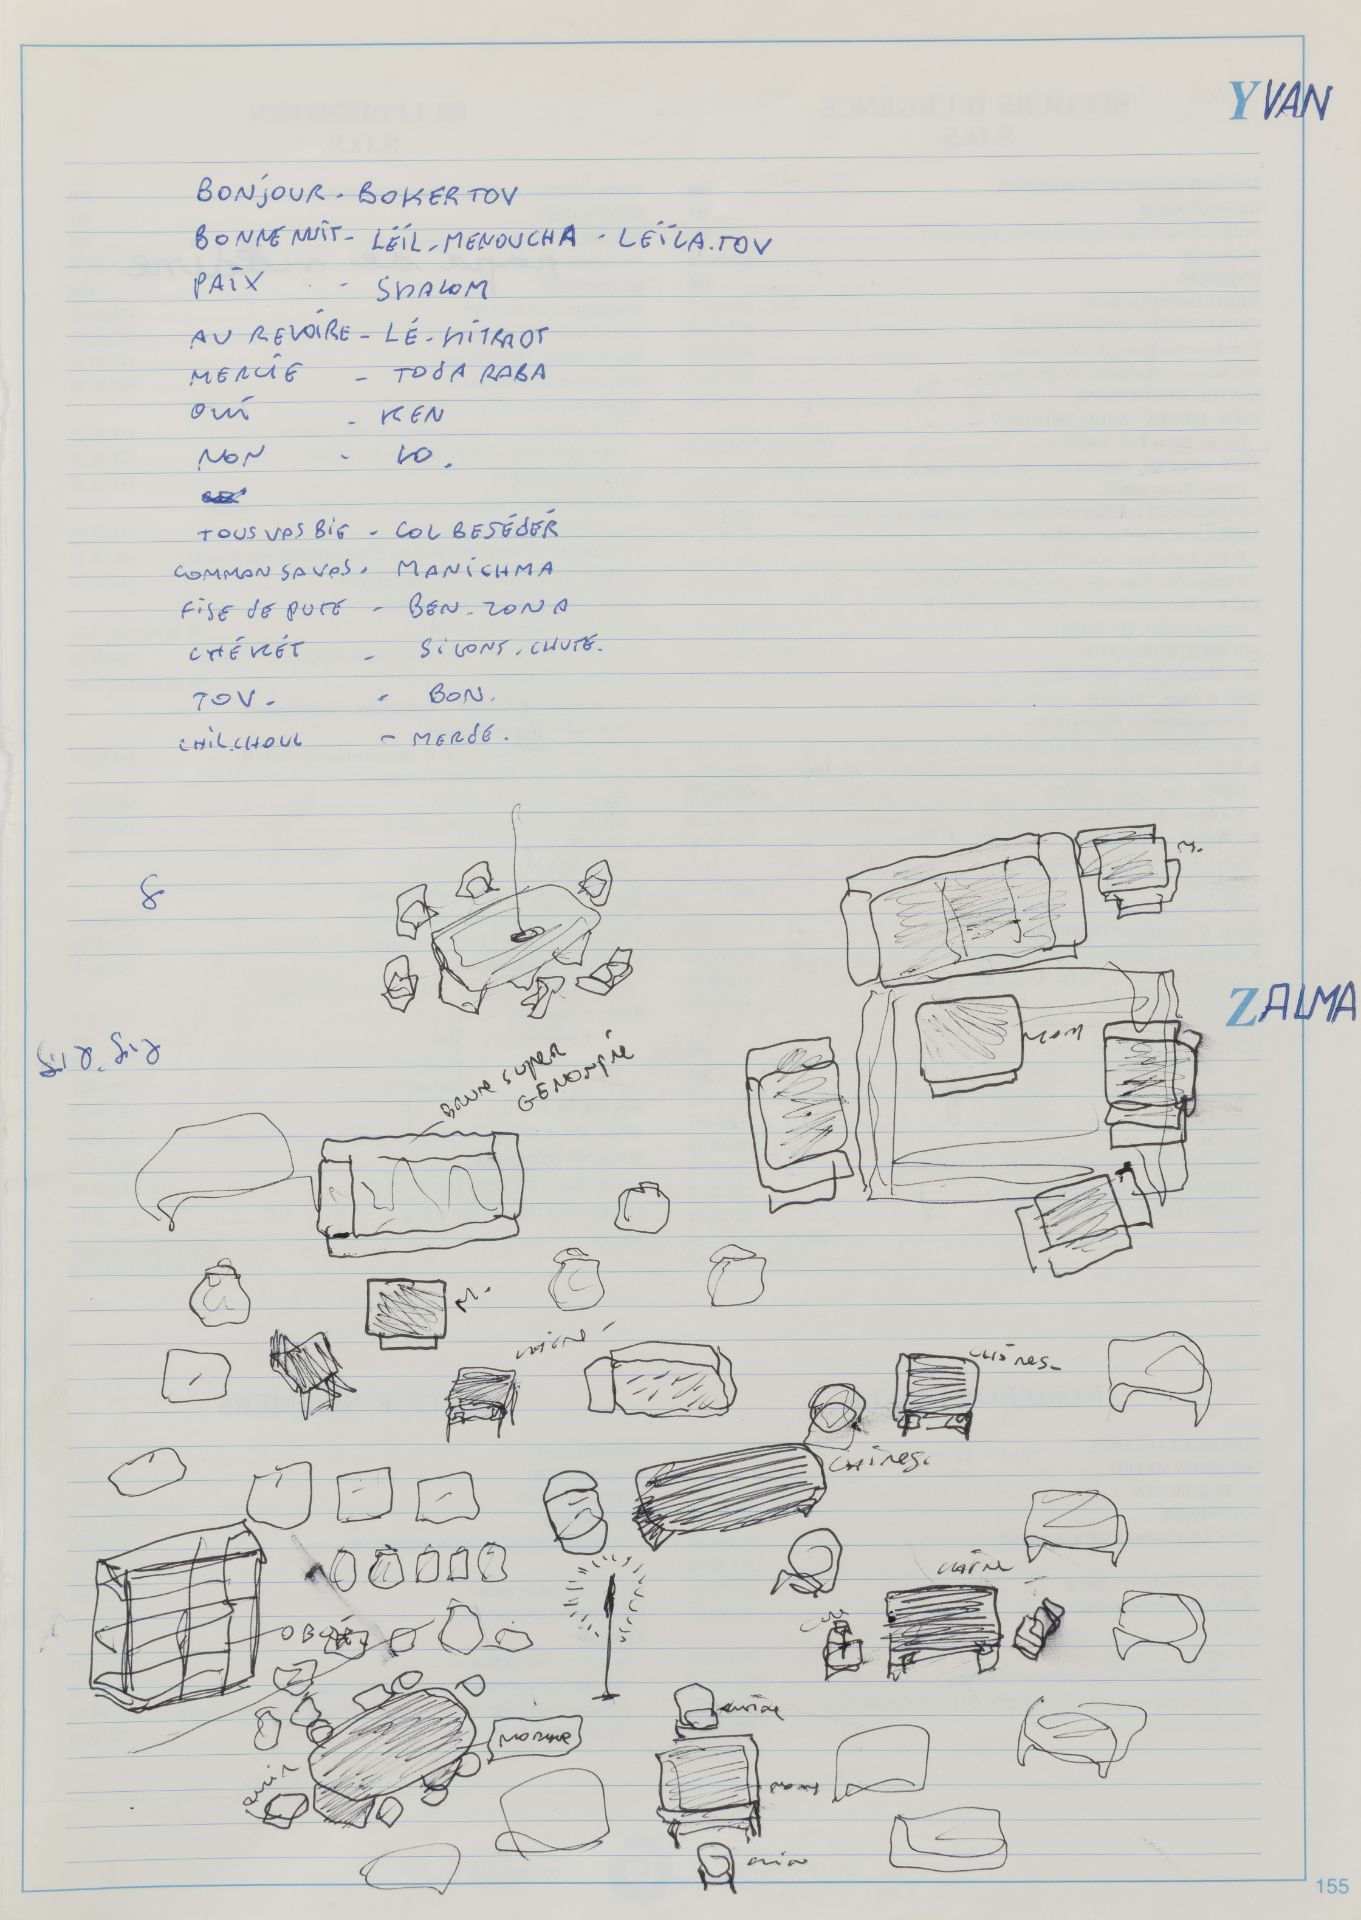 YVAN
BONJOUR - BOKERTOV
BONNE NUIT - LÉÏL - MENOUCHA - LEÏLA.TOV
PAÏX - SHALOM
AU REVOÏRE - LÉ-HITRAOT
MERCIE - TODA RABA
OUI - KEN
NON - LO.
TOUS VAS BIE - COL BESÉDÉR
COMMON SAVAS - MANICHMA
FISE DE PUTE - BEN-ZONA
CHÉKÉT - SILONS, CHUTE.
TOV. - BON.
CHIL.CHOUL - MERDE.
8
M.
ZALMA
BRUNE SUPER
GENORME
M.
CHINES.
MARBRE
155